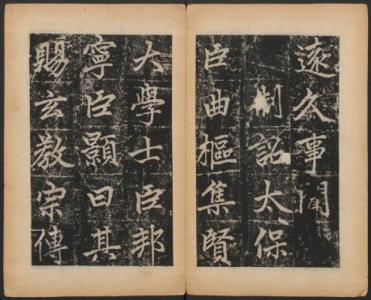 遠久事聞
制詔大保
臣曲樞集賢
大學士臣邦
寧臣顥曰其
賜玄教宗傳